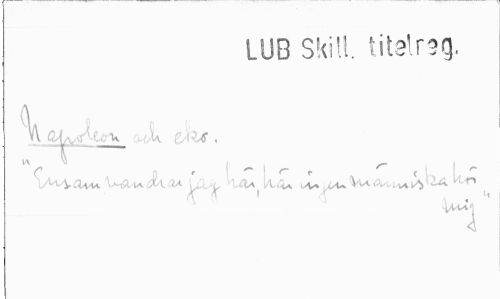 LUB Skill. titelreg.
Napoleon och eko.
"Ensam vandrar jag här, här ingen människa hör
mig"